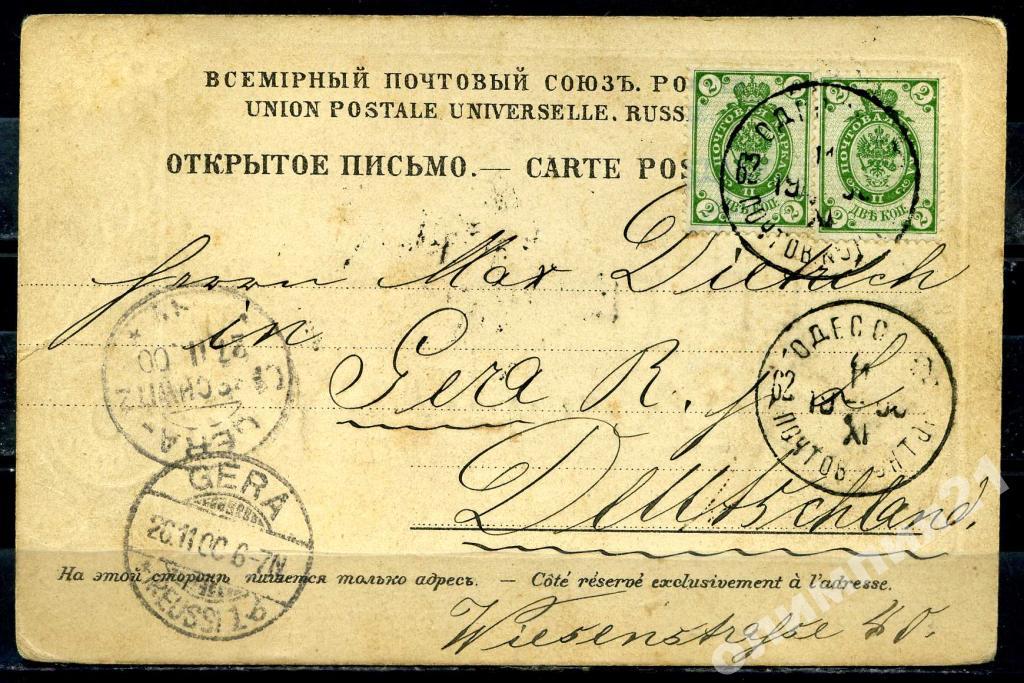 ВСЕМІРНЫЙ ПОЧТОВЫЙ СОЮЗЪ. РО
UNION POSTALE UNIVERSELLE. RUSS
ОТКРЫТОЕ ПИСЬМО.— CARTE POS
2 2
ПОЧТОВАЯ МАРКА
II
2 ДВѢ КОП. 2
2 2
ПОЧТОВАЯ
II
2 ДВѢ КОП. 2
Herrn Max Dietrich
in Gera R. j. L.
Deutschland.
Wiesenstrasse
ОДЕССА
XI
ПОЧТОВ. КОНТ.
GERA
26.11.00 6-7N
REUSS j. L.
GERA-
На этой сторонѣ пишется только адресъ. — Côté réservé exclusivement à l'adresse.
олимпик21